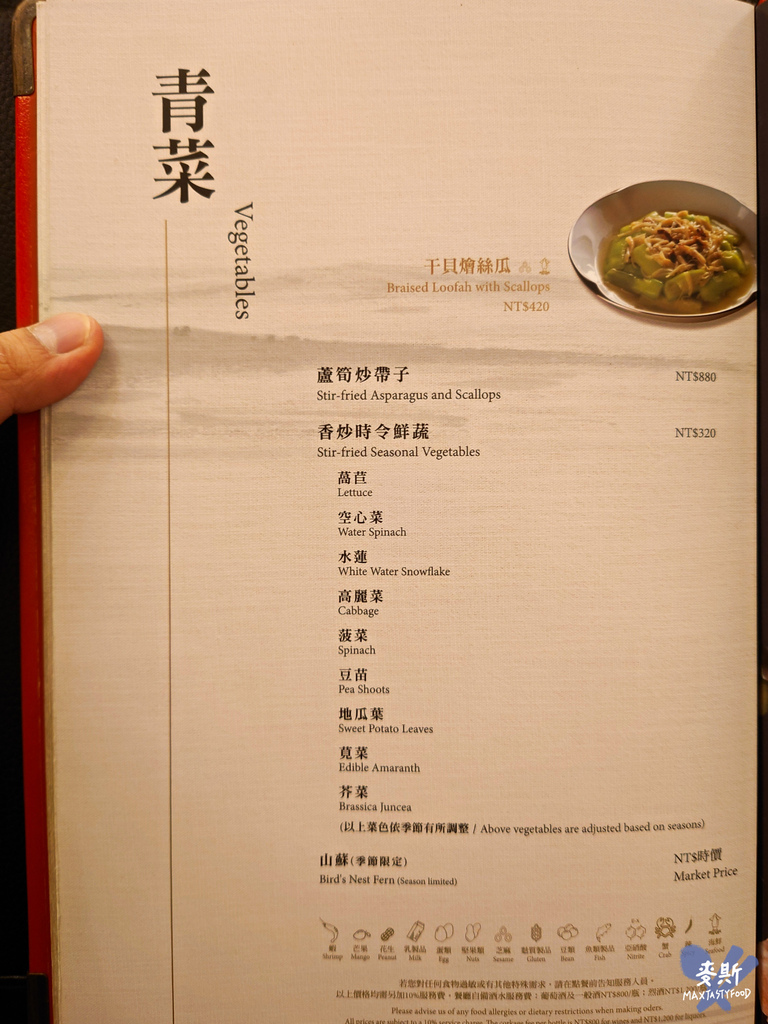 青菜
Vegetables
干貝燴絲瓜
Braised Loofah with Scallops
NT$420
蘆筍炒帶子
NT$880
Stir-fried Asparagus and Scallops
香炒時令鮮蔬
NT$320
Stir-fried Seasonal Vegetables
萵苣
Lettuce
空心菜
Water Spinach
水蓮
White Water Snowflake
高麗菜
Cabbage
菠菜
Spinach
豆苗
Pea Shoots
地瓜葉
Sweet Potato Leaves
莧菜
Edible Amaranth
芥菜
Brassica Juncea
(以上菜色依季節有所調整 / Above vegetables are adjusted based on seasons)
山蘇(季節限定)
NT$時價
Bird's Nest Fern (Season limited)
Market Price
蝦 芒果 花生 乳製品 蛋類 堅果類 芝麻 麩質製品 豆類 魚類製品 亞硝酸 蟹 海鮮
Shrimp Mango Peanut Milk Egg Nuts Sesame Gluten Bean Fish Nitrite Crab Seafood
若您對任何食物過敏或有其他特殊需求，請在點餐前告知服務人員。
以上價格均需另加10%服務費，餐廳自備酒水服務費：葡萄酒及一般酒NT$800/瓶；烈酒
Please advise us of any food allergies or dietary restrictions when making oders.
All prices are subject to a 10% service charge. The corkage fee per bottle is NT$800 for wines and NT$1,200 for liquors.
麥斯
MAXTASTYFOOD